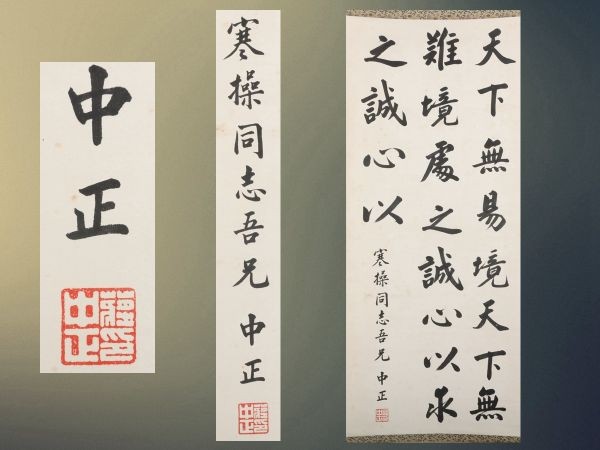 中正
蔣印
中正
寒操同志吾兄 中正
蔣印
中正
天下無易境天下無
難境處之誠心以求
之誠心以
寒操同志吾兄 中正